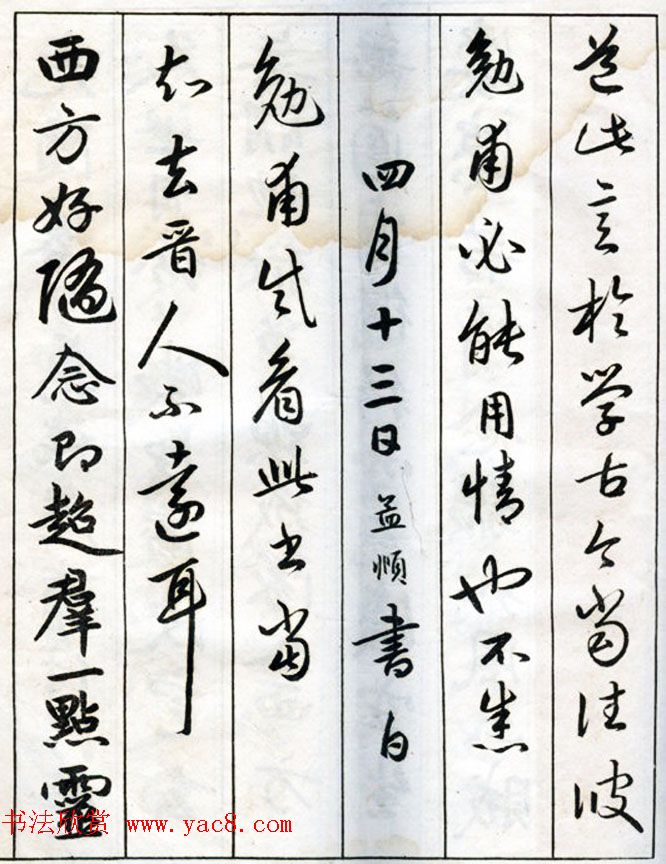 此言於学古当往彼
勉甫必能用情也不悉
四月十三日益順書白
勉甫试看此书当
知去晋人不遠耳
西方好隨念即超羣一點靈
书法欣赏 www.yac8.com